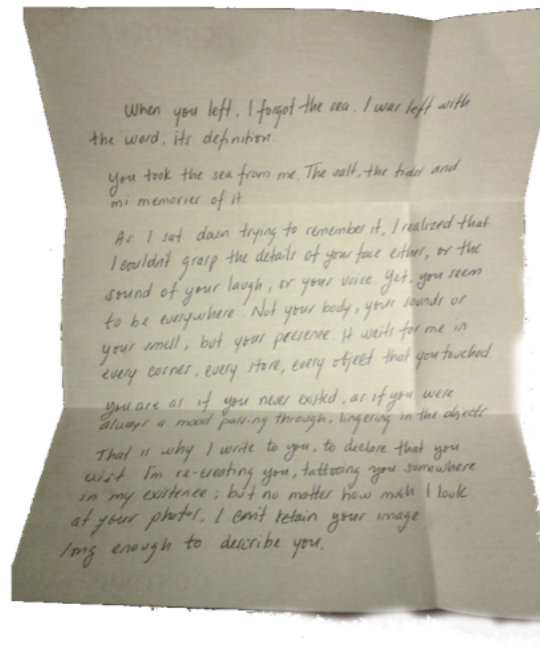 When you left, I forgot the sea. I was left with
the word, its definition.
You took the sea from me. The salt, the tides and
mi memories of it
As I sat down trying to remember it, I realized that
I couldn't grasp the details of your face either, or the
sound of your laugh, or your voice. Yet, you seem
to be everywhere. Not your body, your sounds or
your smell, but your presence. It waits for me in
every corner, every store, every object that you touched.
You are as if you never existed, as if you were
always a mood passing through, lingering in the objects
That is why I write to you, to declare that you
exist. I'm re-creating you, tattooing you somewhere
in my existence; but no matter how much I look
at your photos, I can't retain your image
long enough to describe you.